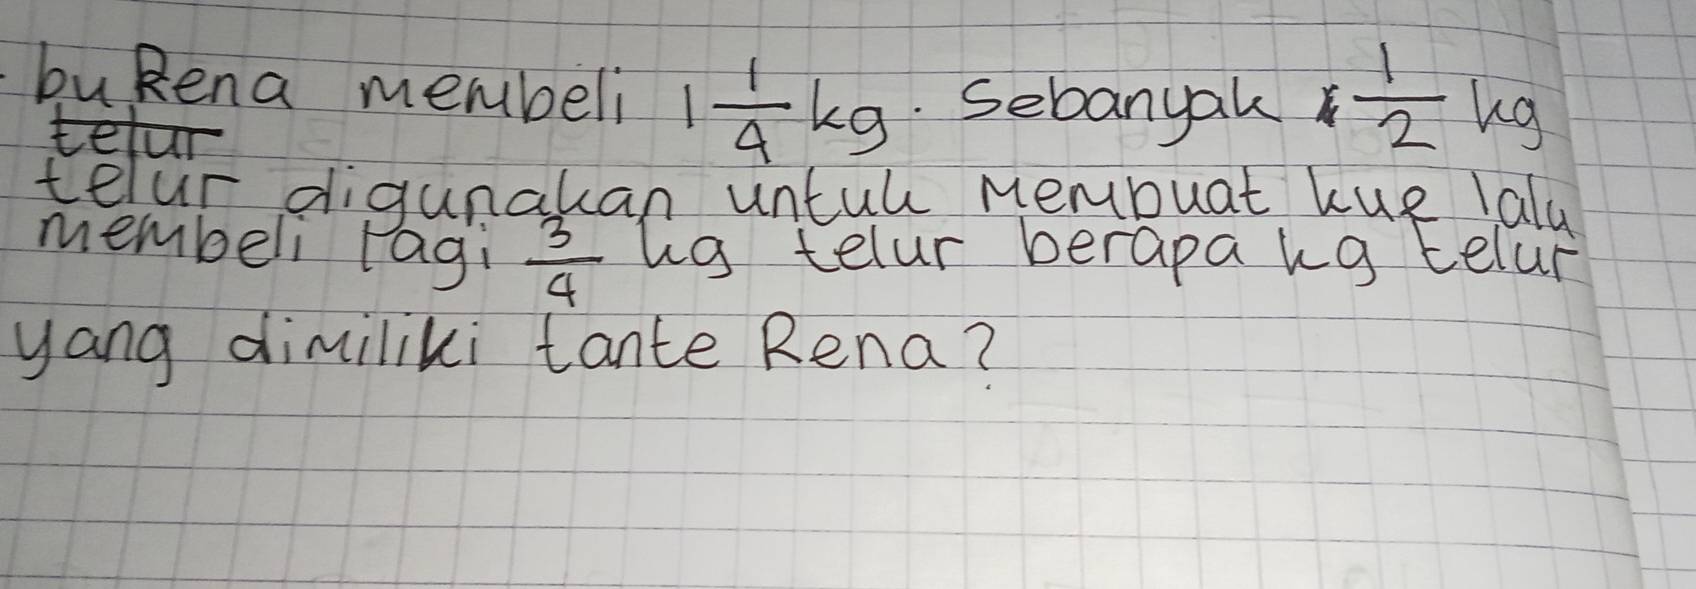 bu Rena membeli 1 1/4 kg. Sebanyak 1/2 kg
telur
telur digunakan untuk membuat kue lalu
membeli lagi 3/4 kg telur berapa kg telur
yang dimiliki tante Rena?